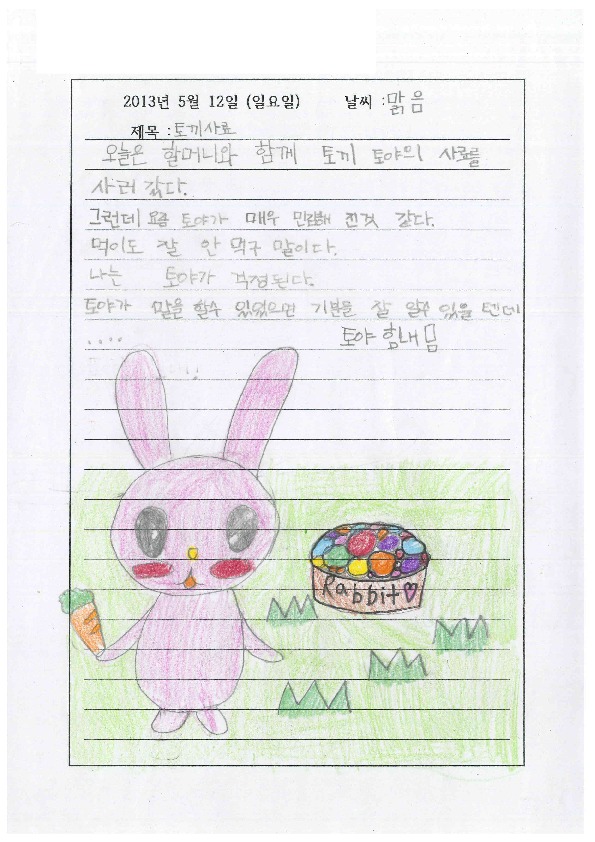 2013년 5월 12일 (일요일) 날씨 : 맑음
제목 : 토끼사료
오늘은 할머니와 함께 토끼 토야의 사료를
사러 갔다.
그런데 요즘 토야가 매우 민감해 진것 같다.
먹이도 잘 안 먹구 말이다.
나는 토야가 걱정된다.
토야가 말을 할수 있었으면 기분을 잘 알수 있을 텐데
....
토야 힘내
Rabbit